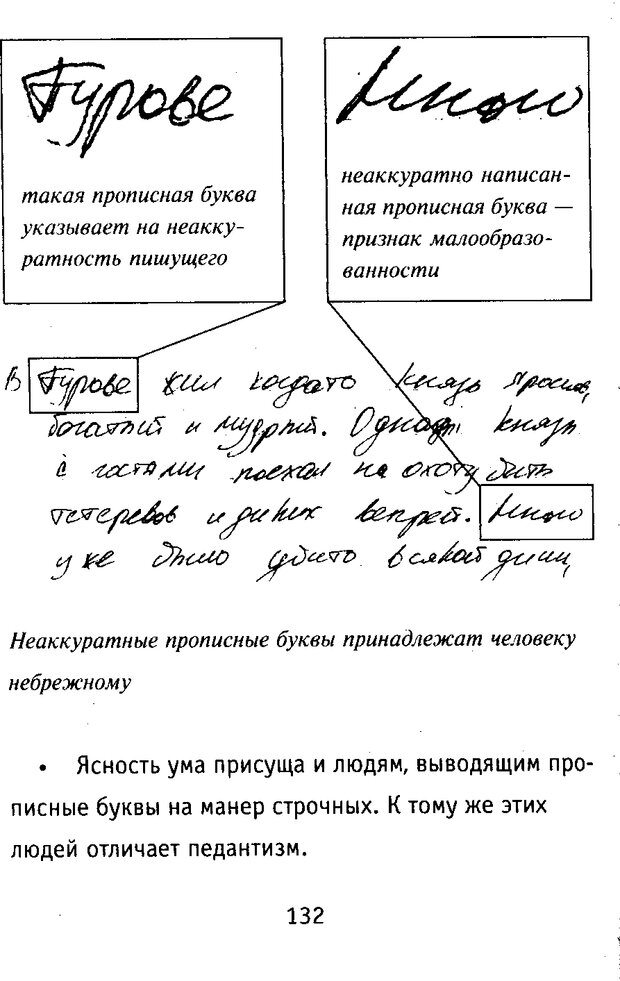 Гурове
такая прописная буква
указывает на неакку-
ратность пишущего
Много
неаккуратно написан-
ная прописная буква —
признак малообразо-
ванности
В Гурове жил когдато князь
богатый и мудрый. Однажды князь
с гостями поехал на охоту бить
тетеревов и диких вепрей. Много
уже было убито всякой дичи,
Неаккуратные прописные буквы принадлежат человеку
небрежному
• Ясность ума присуща и людям, выводящим про-
писные буквы на манер строчных. К тому же этих
людей отличает педантизм.
132